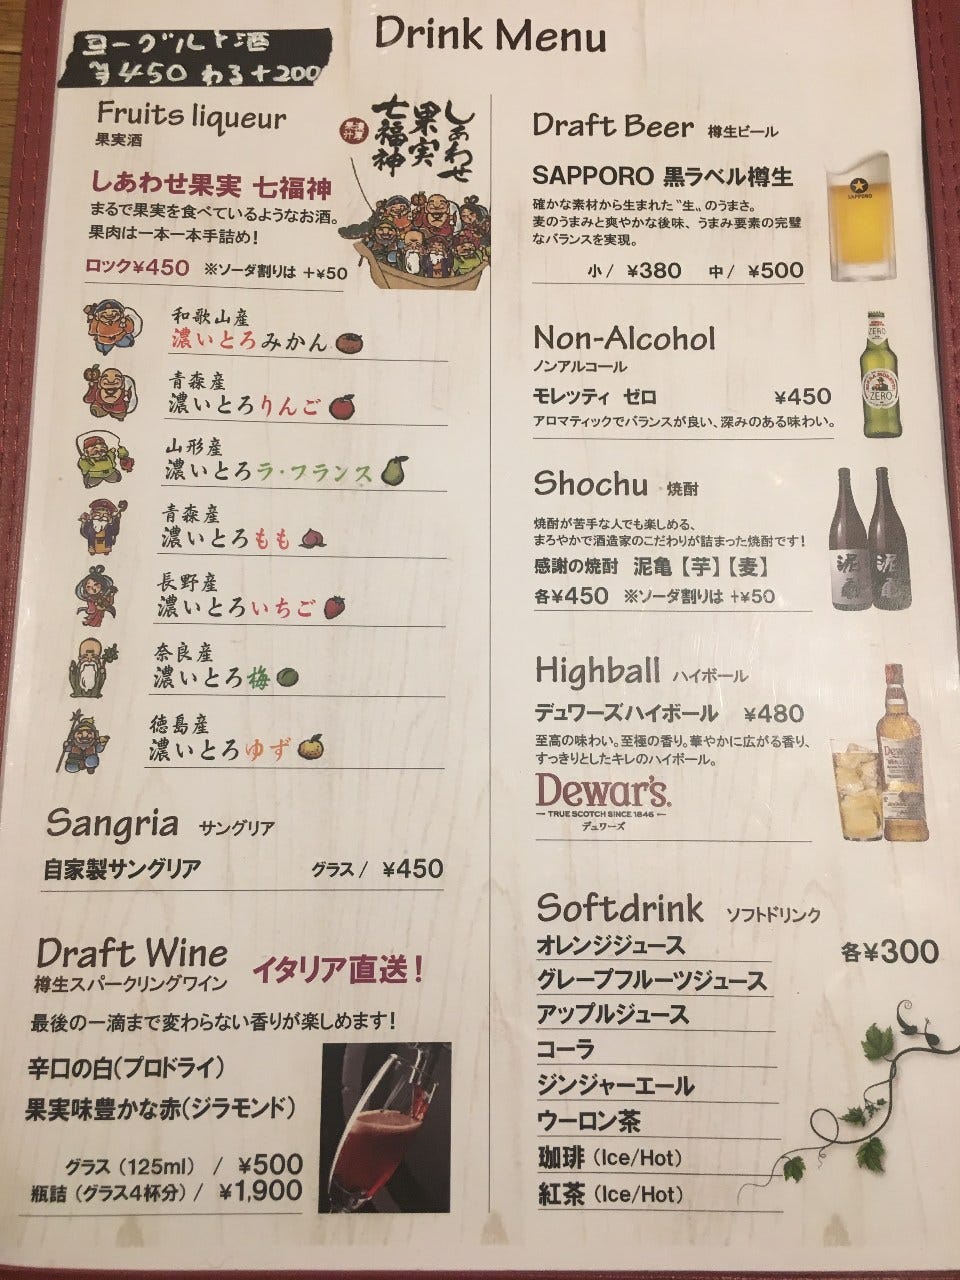 Drink Menu
ヨーグルト酒
¥450 わる+200
Fruits liqueur
果実酒
しあわせ
果実
七福神
しあわせ果実 七福神
まるで果実を食べているようなお酒。
果肉は一本一本手詰め！
ロック¥450 ※ソーダ割りは +¥50
和歌山産
濃いとろみかん
青森産
濃いとろりんご
山形産
濃いとろラ・フランス
青森産
濃いとろもも
長野産
濃いとろいちご
奈良産
濃いとろ梅
徳島産
濃いとろゆず
Sangria サングリア
自家製サングリア グラス / ¥450
Draft Wine
樽生スパークリングワイン イタリア直送！
最後の一滴まで変わらない香りが楽しめます！
辛口の白(プロドライ)
果実味豊かな赤(ジラモンド)
グラス（125ml） / ¥500
瓶詰（グラス4杯分）/ ¥1,900
Draft Beer 樽生ビール
SAPPORO 黒ラベル樽生
確かな素材から生まれた〝生〟のうまさ。
麦のうまみと爽やかな後味、うまみ要素の完璧
なバランスを実現。
小 / ¥380 中 / ¥500
SAPPORO
Non-Alcohol
ノンアルコール
モレッティ ゼロ ¥450
アロマティックでバランスが良い、深みのある味わい。
ZERO
ZERO
Shochu 焼酎
焼酎が苦手な人でも楽しめる、
まろやかで酒造家のこだわりが詰まった焼酎です！
感謝の焼酎 泥亀【芋】【麦】
各¥450 ※ソーダ割りは +¥50
泥亀
泥亀
Highball ハイボール
デュワーズハイボール ¥480
至高の味わい。至極の香り。華やかに広がる香り、
すっきりとしたキレのハイボール。
Dewar's.
TRUE SCOTCH SINCE 1846
デュワーズ
Dewar's
Softdrink ソフトドリンク
オレンジジュース 各¥300
グレープフルーツジュース
アップルジュース
コーラ
ジンジャーエール
ウーロン茶
珈琲 (Ice/Hot)
紅茶 (Ice/Hot)